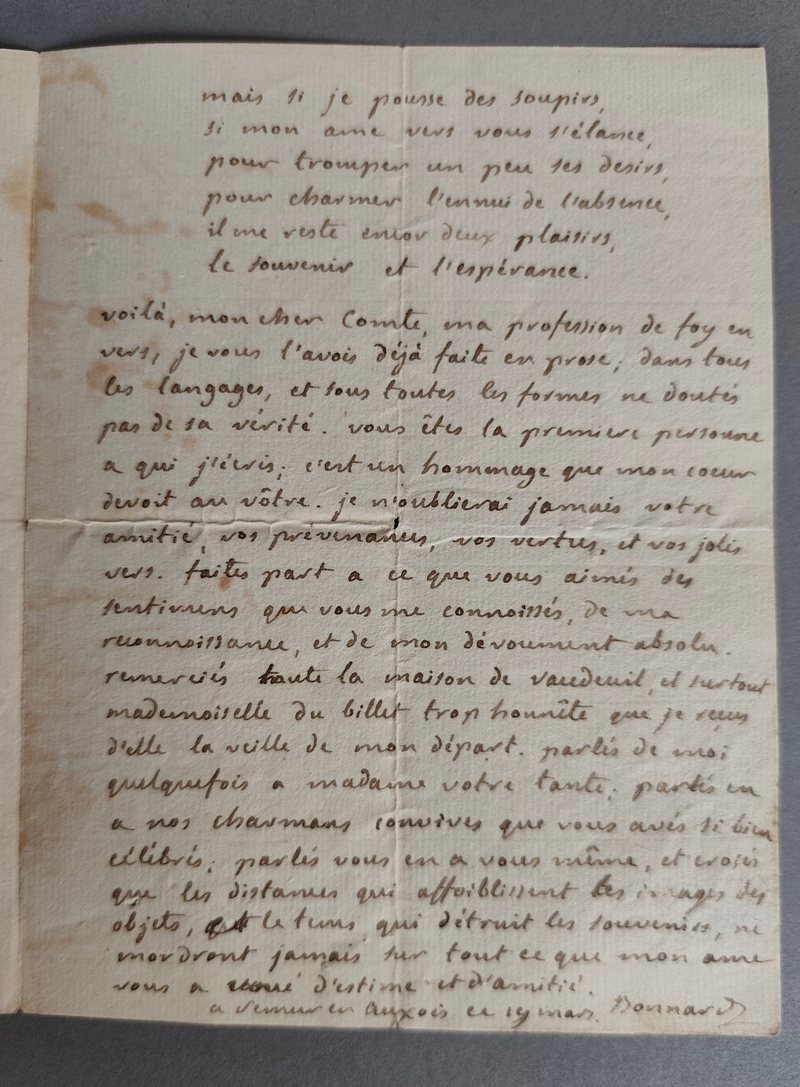 mais si je pousse des soupirs,
si mon ame vers vous s'élance,
pour tromper un peu ses desirs,
pour charmer l'ennui de l'absence,
il me reste encor deux plaisirs,
le souvenir et l'espérance.
voilà, mon cher Comte, ma profession de foy en
vers, je vous l'avois déjà faite en prose; dans tous
les langages, et sous toutes les formes ne doutés
pas de sa vérité. vous êtes la premiere personne
a qui j'écris; c'est un hommage que mon coeur
devoit au vôtre. je n'oublierai jamais votre
amitié, vos prévenances, vos vertus, et vos jolis
vers. faites part a ce que vous aimés des
sentimens que vous me connoissés, de ma
reconnoissance, et de mon dévoument absolu.
remerciés toute la maison de vaudeuil, et surtout
mademoiselle du billet trop honnête que je reçus
d'elle la veille de mon départ. parlés de moi
quelquefois a madame votre tante; parlés en
a nos charmans convives que vous avés si bien
célébrés; parlés vous en a vous même, et croiés
que les distances qui affoiblissent les images des
objets, et le tems qui détruit les souvenirs, ne
mordront jamais sur tout ce que mon ame
vous a voué d'estime et d'amitié.
a Semur en Auxois ce 19 mars. Bonnard